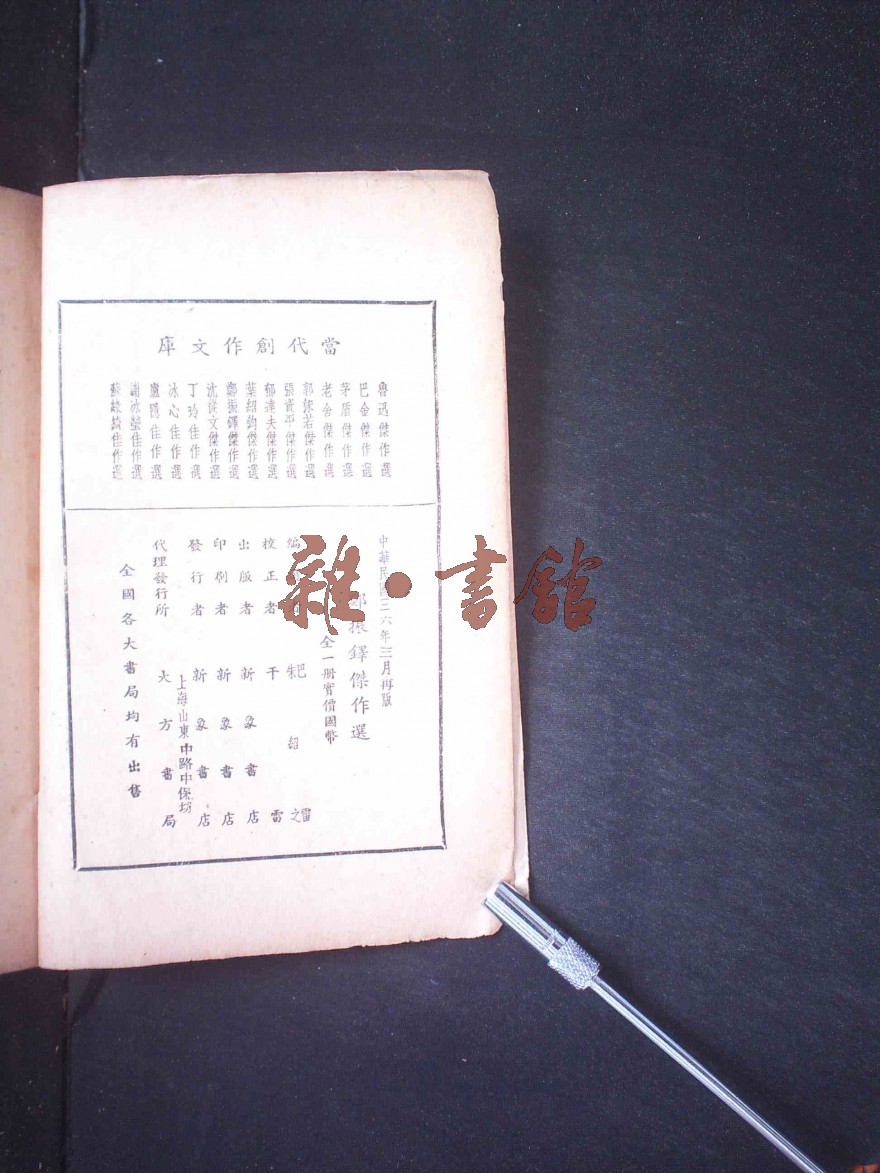 當代創作文庫
魯迅傑作選
巴金傑作選
茅盾傑作選
老舍傑作選
郭沫若傑作選
張資平傑作選
郁達夫傑作選
葉紹鈞傑作選
鄭振鐸傑作選
沈從文傑作選
丁玲佳作選
冰心佳作選
廬隱佳作選
謝冰瑩佳作選
蘇綠漪佳作選
中華民國三六年三月再版
鄭振鐸傑作選
全一册實價國幣
編 巴雷
朱紹之
校正者 干雷
出版者 新象書店
印刷者 新象書店
發行者 新象書店
上海山東中路中保坊
代理發行所 大方書局
全國各大書局均有出售
雜·書館